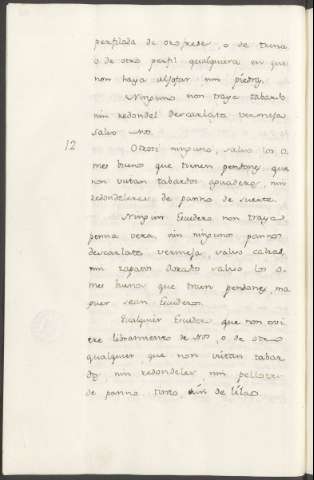 perfilada de orofrese, o de trena
o de otro perfil qualquiera en que
non haya aljofar nin piedra.
Ninguno non traya tabardo
nin redondel descarlata vermeja
salvo Nos.
12 Otrosi ninguno, salvo los o-
mes buenos que tienen pendones que
non vistan tabardos aguaderos nin
redondeles de panno de suerte.
Ningun Escudero non traya
penna vera, nin ningunos pannos
descarlata vermeja, salvo calzas,
nin zapato dorado salvo los o-
mes buenos que traen pendones, ma
guer sean Escuderos.
Qualquier Escudero que non ovi
ere libramiento de Nos, o de otro
qualquier que non vistan tabar
do, nin redondeles nin pellotes
de panno tinto, nin de lilao